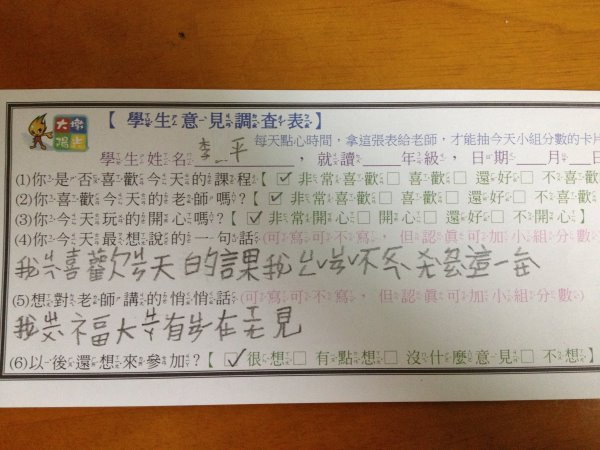 大家
【學生意見調查表】
每天點心時間，拿這張表給老師，才能抽今天小組分數的卡片
學生姓名 李 平，就讀____年級，日期____月__日
(1)你是否喜歡今天的課程【☑非常喜歡□ 喜歡□ 還好□ 不喜歡
(2)你喜歡今天的老師嗎？【☑非常喜歡□ 喜歡□ 還好□ 不喜歡
(3)你今天玩的開心嗎？【☑非常開心□ 開心□ 還好□ 不開心】
(4)你今天最想說的一句話(可寫可不寫，但認真可加小組分數)
我 喜歡 天的課我
(5)想對老師講的悄悄話(可寫可不寫，但認真可加小組分數)
我 福大 有 在 見
(6)以後還想來參加？【☑很想□ 有點想□ 沒什麼意見□ 不想】